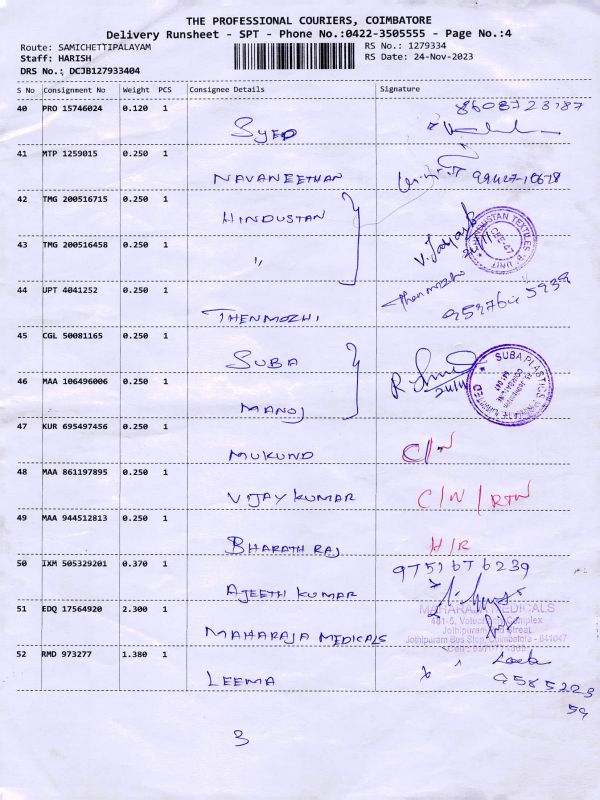 THE PROFESSIONAL COURIERS, COIMBATORE
Delivery Runsheet - SPT - Phone No.:0422-3505555 - Page No.:4
Route: SAMICHETTIPALAYAM RS No.: 1279334
Staff: HARISH RS Date: 24-Nov-2023
DRS No.: DCJB127933404
S No Consignment No Weight PCS Consignee Details Signature
40 PRO 15746024 0.120 1 8608723187
SYED
41 MTP 1259015 0.250 1
NAVANEETHAN
42 TMG 200516715 0.250 1
HINDUSTAN
HINDUSTAN TEXTILES-B. UNIT
43 TMG 200516458 0.250 1
"
44 UPT 4041252 0.250 1 Thenmozhi
THENMOZHI
45 CGL 50081165 0.250 1
SUBA
SUBA PLASTICS PRIVATE LIMITED
46 MAA 106496006 0.250 1
MANOJ
47 KUR 695497456 0.250 1
MUKUND C/N
48 MAA 861197895 0.250 1
VIJAY KUMAR C/N/RTN
49 MAA 944512813 0.250 1
BHARATH RAJ H/R
50 IXM 505329201 0.370 1 9751676239
AJEETH KUMAR
51 EDQ 17564920 2.300 1 MAHARAJA MEDICALS
MAHARAJA MEDICALS
Jothipuram Bus Stop, Coimbatore - 641047
52 RMD 973277 1.380 1
LEEMA 9585223
59
3